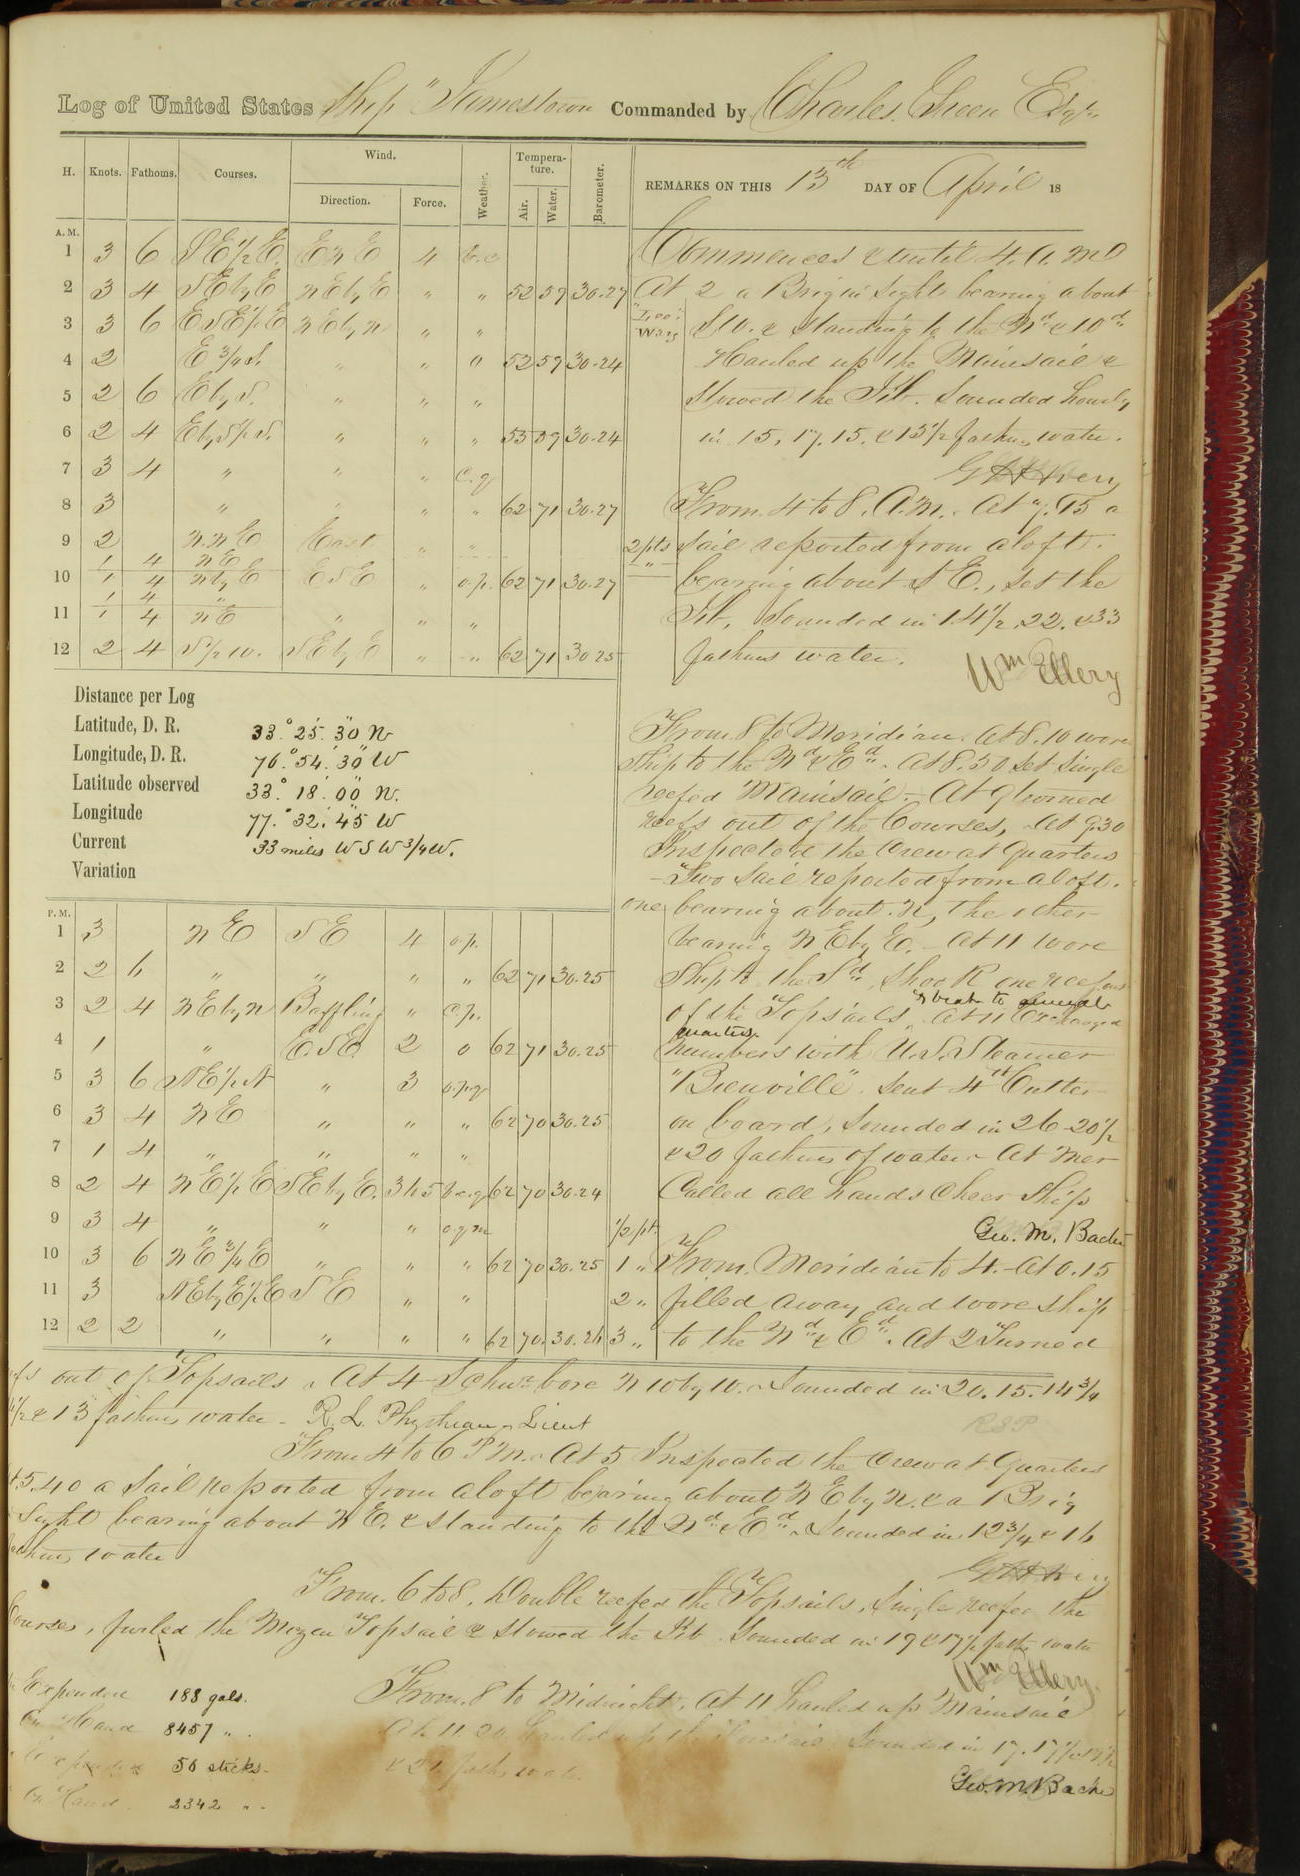 Log of United States Ship "Jamestown Commanded by Charles Green Esqr.
H. Knots. Fathoms. Courses. Wind. Direction. Force. Weather. Tempera-ture. Air. Water. Barometer.
REMARKS ON THIS 13th DAY OF April 18
A. M.
1 3 6 SE1/2E. ENE 4 b.c
2 3 4 SEbyE NEbyE " " 52 59 30.27
3 3 6 ESE1/2E NEbyN " "
4 2 E 3/4 S. " " " 52 59 30.24
5 2 6 EbyS. " " "
6 2 4 EbyS1/2S. " " " 53 59 30.24
7 3 4 " " " c.q
8 3 " " " " 62 71 30.27
9 2 N.NE East " " 2 pts
1 4 NE
10 1 4 NbyE ESE " o.p. 62 71 30.27
1 4 "
11 1 4 NE " " "
12 2 4 S1/2W. SEbyE " " 62 71 30 25
Commences & until 4. A. M
At 2 a Brig in sight bearing about
SW. & standing to the Nd & Wd
Hauled up the Mainsail &
stowed the Jib. Sounded hourly
in 15, 17, 15. & 13 1/2 fathms water.
From 4 to 8. A.M. At 7.15 a
sail reported from aloft.
bearing about SE., set the
Jib, Sounded in 14 1/2 22. & 33
fathms water.
Wm Ellery
Distance per Log
Latitude, D. R. 33° 25' 30" N
Longitude, D. R. 76° 54' 30" W
Latitude observed 33° 18' 00" N.
Longitude 77° 32' 45" W
Current 33 miles WSW 3/4 W.
Variation
From 8 to Meridian. At 8.10 wore
ship to the Nd & Ed. At 8.50 set single
reefed Mainsail. At 9 turned
reefs out of the Courses, At 9.30
Inspected the Crew at Quarters
- Two sail reported from aloft.
one bearing about N, the other
bearing NEbyE. At 11 wore
ship to the Sd, shook one reef out
of the Topsails, & beat to general quarters. At 11 Exchanged
numbers with U.S. Steamer
"Bienville". Sent 4th Cutter
on board, Sounded in 26 - 20 1/2
& 20 fathms of water. At Mer
Called all hands cheer ship
Geo. M. Bache
P. M.
1 3 NE SE 4 o.p.
2 2 6 " " " " 62 71 30.25
3 2 4 NEbyN Baffling " c.p.
4 1 " E.SE 2 o 62 71 30.25
5 3 6 NE1/2N " 3 o.p.q
6 3 4 NE " " " 62 70 30.25
7 1 4 " " " "
8 2 4 NE1/2E SEbyE. 3 to 5 b.c.q 62 70 30.24
9 3 4 " " " o.q.m 1/2 pt.
10 3 6 NE 3/4 E " " " 62 70 30.25 1 "
11 3 NEbyE1/2E SE " " 2 "
12 2 2 " " " " 62 70. 30.26 3 "
From Meridian to 4. At 0.15
filled away and wore ship
to the Nd & Ed. At 2 Turned
out of Topsails. At 4 Schnr bore NWbyW. Sounded in 20. 15. 14 3/4
& 13 fathms water - R. L. Phythian Lieut
From 4 to 6 P.M. At 5 Inspected the Crew at Quarters
5.40 a Sail reported from aloft bearing about NEbyN. & a Brig
Sight bearing about NE. & standing to the Nd & Ed. Sounded in 12 3/4 & 16
water
From 6 to 8. Double reefed the Topsails, Single reefed the
Courses, furled the Mizen Topsail & stowed the Jib. Sounded in 19 & 17 1/2 faths water
Wm Ellery.
From 8 to Midnight. At 11 hauled up Mainsail
At 11.20 hauled up the Foresail. Sounded in 17. 17 1/2
& 21 faths water
Geo. M. Bache
Expended 188 gals.
On Hand 8457 " .
Expended 50 sticks.
On Hand. 2342 "